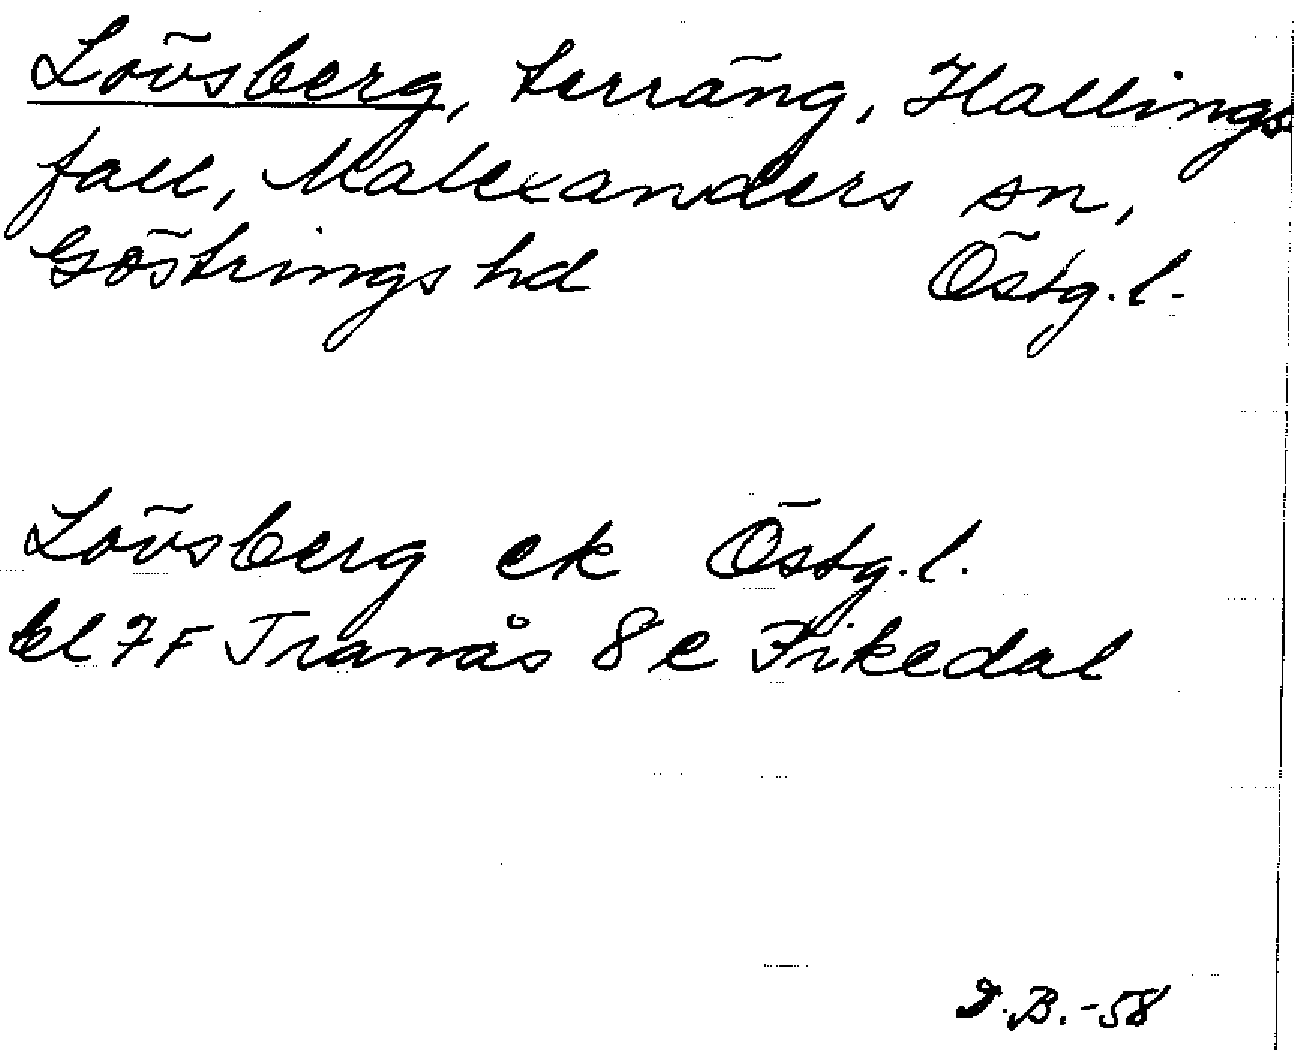 Lövsberg, terräng, Hallings
fall, Malexanders sn,
Göstrings hd Östg. l.
Lövsberg ek Östg. l.
bl 7F Tranås 8 e Frikedal
D.B. -58